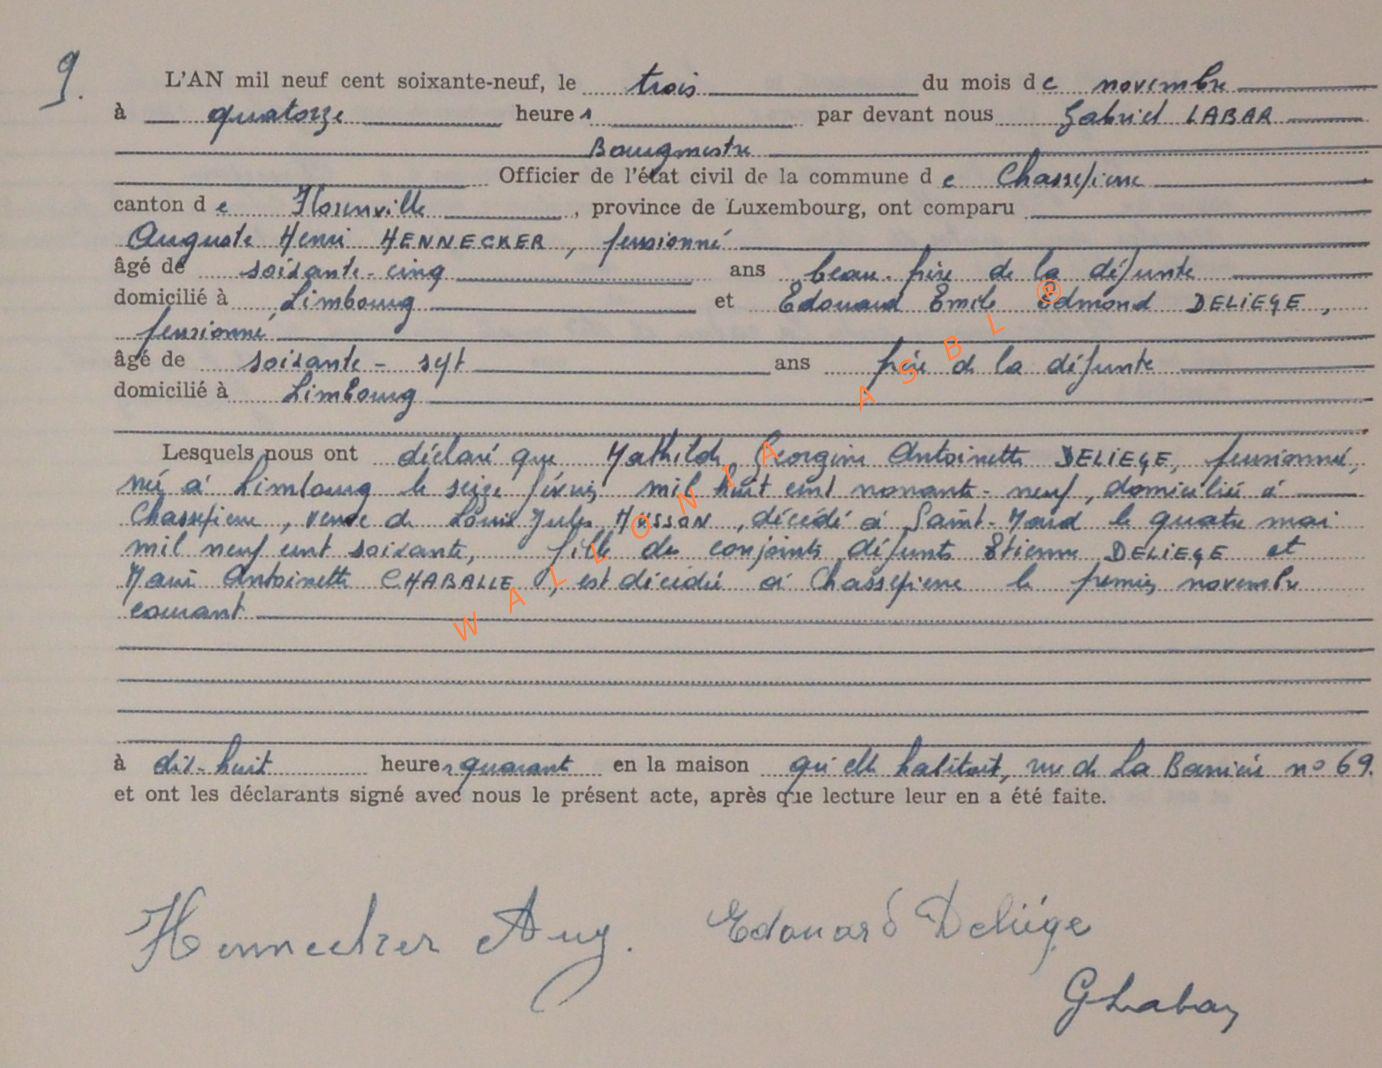 9.
L'AN mil neuf cent soixante-neuf, le trois du mois de novembre
à quatorze heures par devant nous Gabriel LABAR
Bourgmestre
Officier de l'état civil de la commune de Chassepierre
canton de Florenville, province de Luxembourg, ont comparu
Auguste Henri HENNECKER, pensionné
âgé de soixante-cinq ans beau-frère de la défunte
domicilié à Limbourg et Edouard Emile Edmond DELIEGE,
pensionné
âgé de soixante-sept ans frère de la défunte
domicilié à Limbourg
Lesquels nous ont déclaré que Mathilde Georgine Antoinette DELIEGE, pensionnée,
née à Limbourg le seize février mil huit cent nonante-neuf, domiciliée à
Chassepierre, veuve de Louis Jules HUSSON, décédé à Saint-Mard le quatre mai
mil neuf cent soixante, fille des conjoints défunts Etienne DELIEGE et
Marie Antoinette CHABALLE, est décédée à Chassepierre le premier novembre
courant
à dix-huit heures quarante en la maison qu'elle habitait, rue de La Barrière n° 69.
et ont les déclarants signé avec nous le présent acte, après que lecture leur en a été faite.
Hennecker Aug. Edouard Deliége
GLabar
WALLONIA ASBL ®